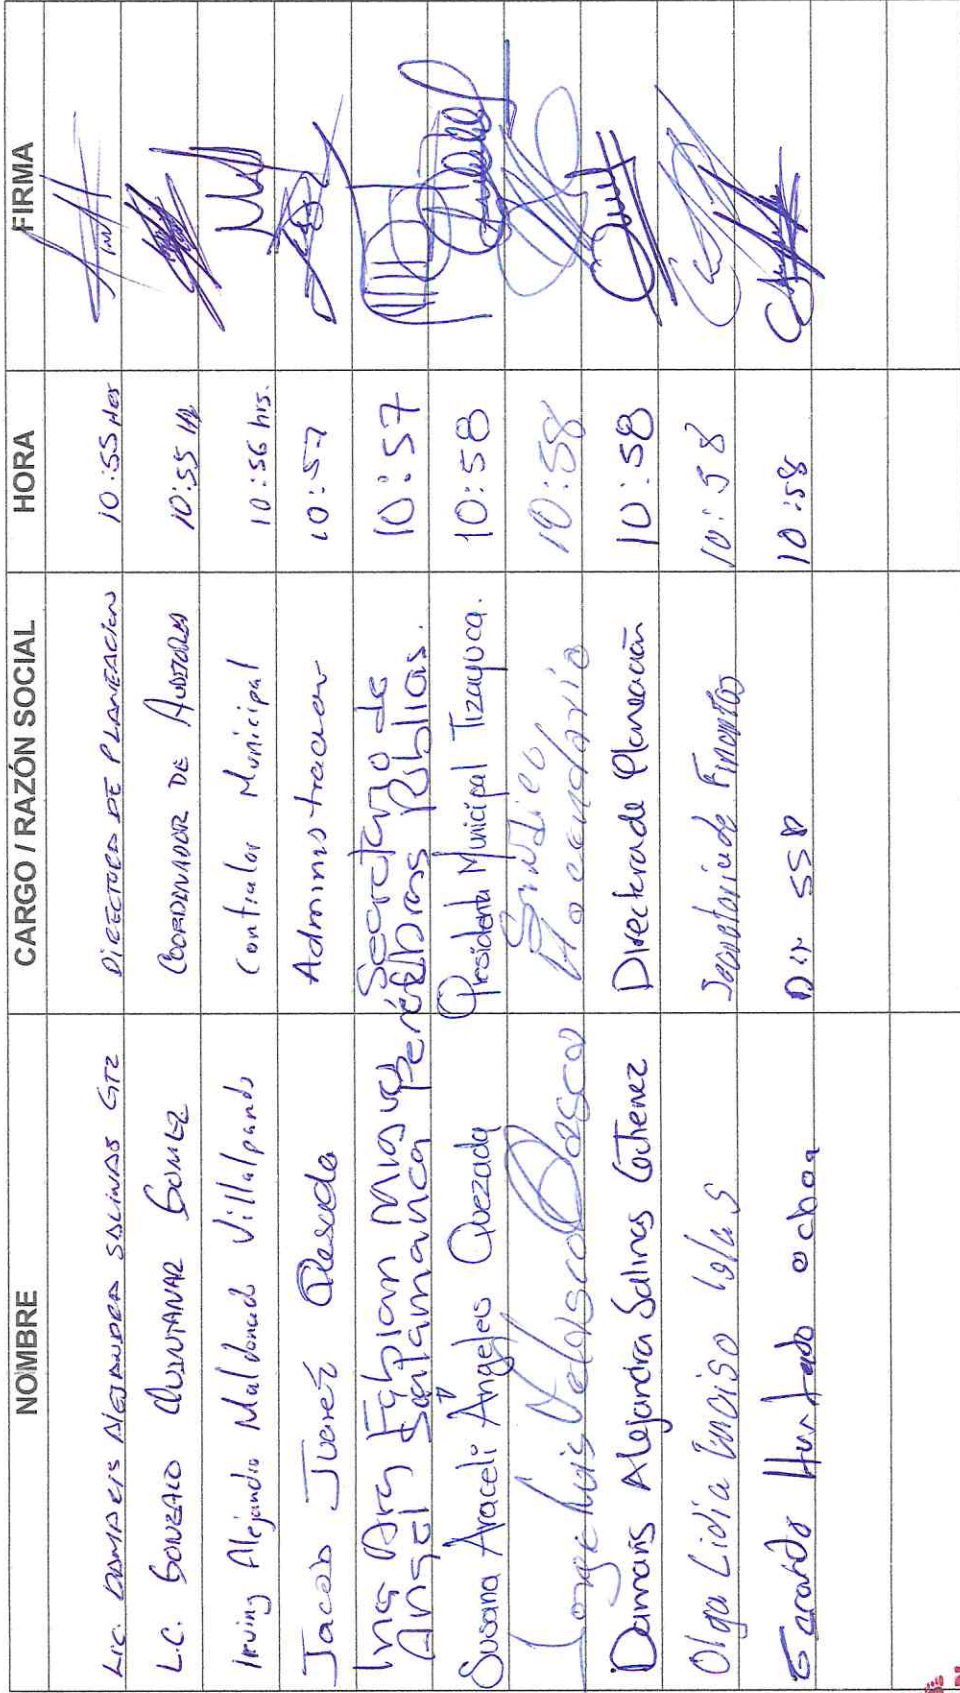 NOMBRE CARGO / RAZÓN SOCIAL HORA FIRMA
Lic. DAMARIS ALEJANDRA SALINAS GTZ DIRECTORA DE PLANEACION 10:55 Hrs
L.C. GONZALO QUINTANAR GOMEZ COORDINADOR DE AUDITORIA 10:55
Irving Alejandro Maldonado Villalpando Contralor Municipal 10:56 hrs.
Jacob Juarez Quesada Administracion 10:57
Ing Ary Fabian Secretario de 10:57
Angel Salamanca Perez Obras Públias.
Susana Araceli Ángeles Quezada Presidenta Municipal Tizayuca. 10:58
Jorge Luis Velasco Blasco Sindico 10:58
Hacendario
Damaris Alejandra Salinas Gutierrez Directora de Planeación 10:58
Olga Lidia Enciso Islas Secretaria de Finanzas 10:58
Gerardo Hurtado ochoa Dir SSP 10:58